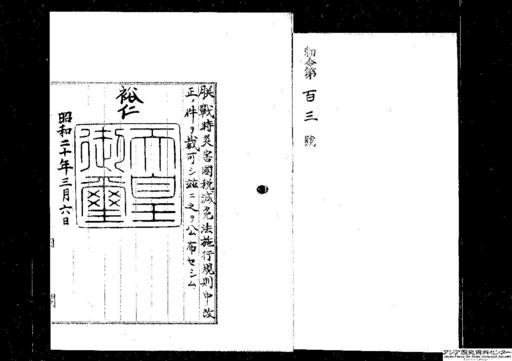 勅令第百三號
朕戰時災害國稅減免法施行規則中改
正ノ件ヲ裁可シ茲ニ之ヲ公布セシム
裕仁
天皇御璽
昭和二十年三月六日
アジア歴史資料センター